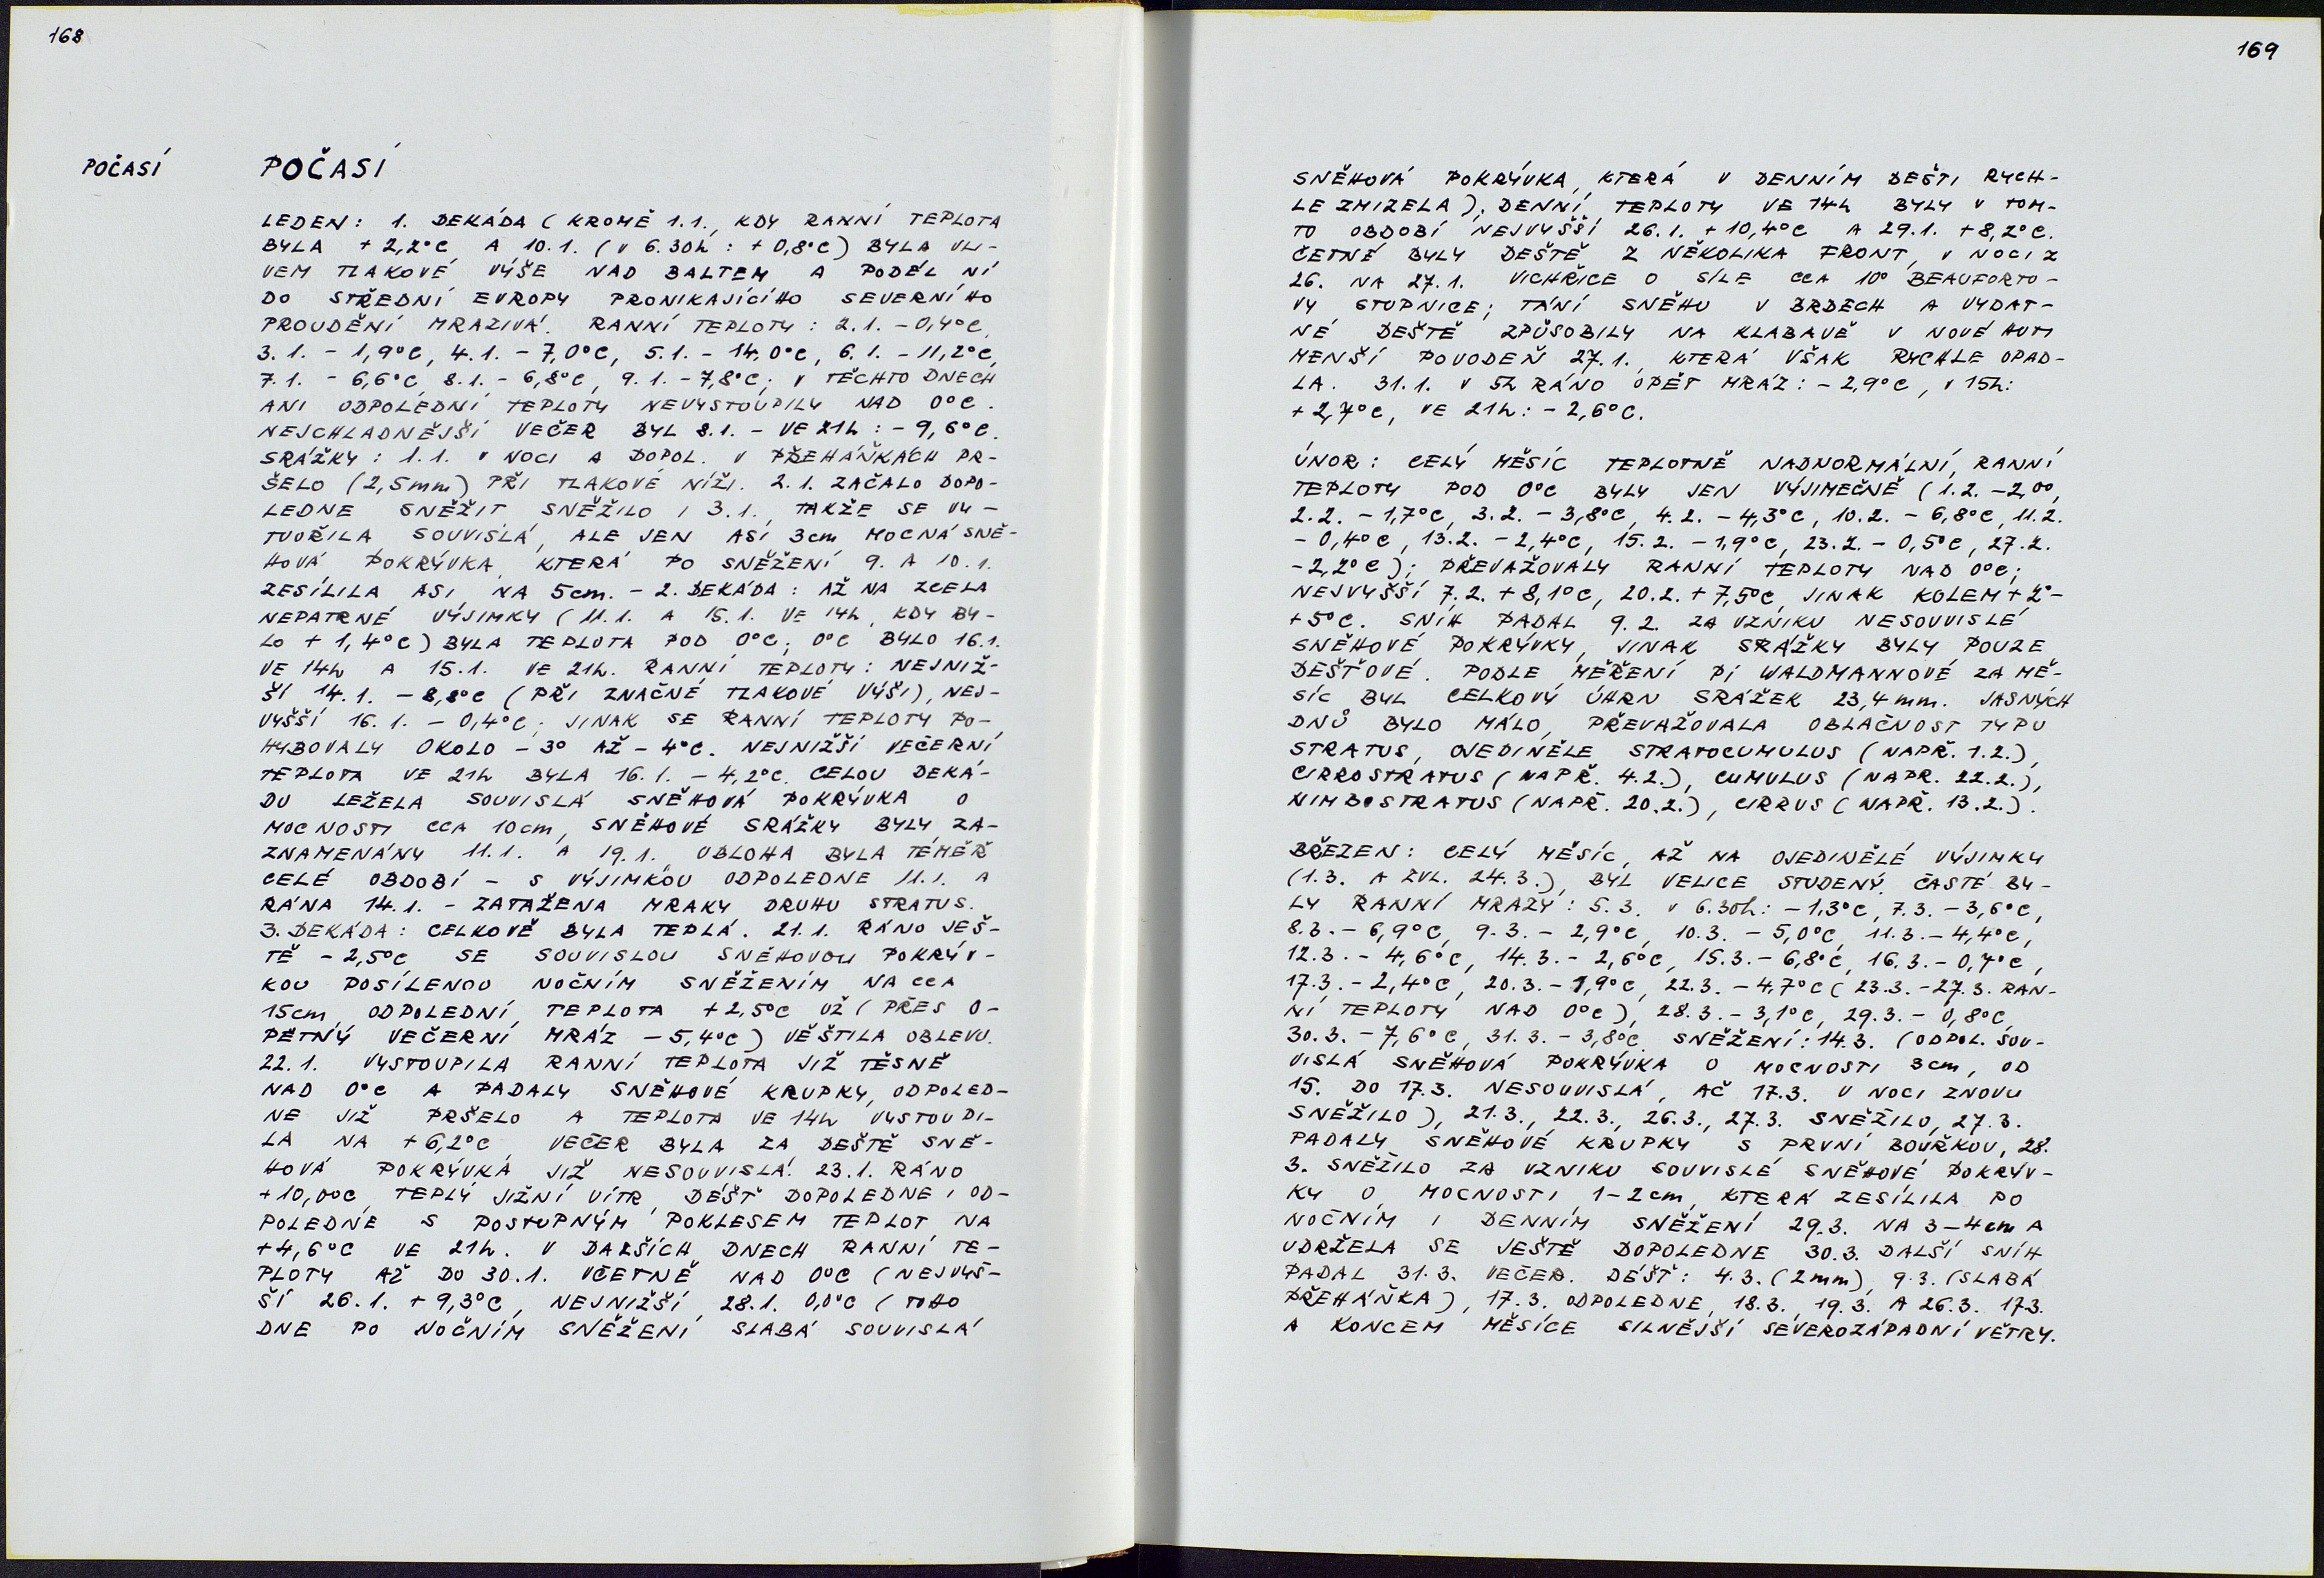 168
POČASÍ
POČASÍ
LEDEN: 1. DEKÁDA (KROMĚ 1.1., KDY RANNÍ TEPLOTA
BYLA +2,2°C A 10.1. (V 6.30h: +0,8°C) BYLA VLI-
VEM TLAKOVÉ VÝŠE NAD BALTEM A PODÉL NÍ
DO STŘEDNÍ EVROPY PRONIKAJÍCÍHO SEVERNÍHO
PROUDĚNÍ MRAZIVÁ. RANNÍ TEPLOTY: 2.1. -0,4°C,
3.1. -1,9°C, 4.1. -7,0°C, 5.1. -14,0°C, 6.1. -11,2°C,
7.1. -6,6°C, 8.1. -6,8°C, 9.1. -7,8°C; V TĚCHTO DNECH
ANI ODPOLEDNÍ TEPLOTY NEVYSTOUPILY NAD 0°C.
NEJCHLADNĚJŠÍ VEČER BYL 8.1. - VE 21h: -9,6°C.
SRÁŽKY: 1.1. V NOCI A DOPOL. V PŘEHÁŇKÁCH PR-
ŠELO (2,5mm) PŘI TLAKOVÉ NÍŽI. 2.1. ZAČALO DOPO-
LEDNE SNĚŽIT, SNĚŽILO I 3.1., TAKŽE SE VY-
TVOŘILA SOUVISLÁ, ALE JEN ASI 3cm MOCNÁ SNĚ-
HOVÁ POKRÝVKA, KTERÁ PO SNĚŽENÍ 9. A 10.1.
ZESÍLILA ASI NA 5cm. - 2. DEKÁDA: AŽ NA ZCELA
NEPATRNÉ VÝJIMKY (11.1. A 15.1. VE 14h, KDY BY-
LO +1,4°C) BYLA TEPLOTA POD 0°C; 0°C BYLO 16.1.
VE 14h A 15.1. VE 21h. RANNÍ TEPLOTY: NEJNIŽ-
ŠÍ 14.1. -8,8°C (PŘI ZNAČNÉ TLAKOVÉ VÝŠI), NEJ-
VYŠŠÍ 16.1. -0,4°C; JINAK SE RANNÍ TEPLOTY PO-
HYBOVALY OKOLO -3° AŽ -4°C. NEJNIŽŠÍ VEČERNÍ
TEPLOTA VE 21h BYLA 16.1. -4,2°C. CELOU DEKÁ-
DU LEŽELA SOUVISLÁ SNĚHOVÁ POKRÝVKA O
MOCNOSTI CCA 10cm, SNĚHOVÉ SRÁŽKY BYLY ZA-
ZNAMENÁNY 11.1. A 19.1., OBLOHA BYLA TÉMĚŘ
CELÉ OBDOBÍ - S VÝJIMKOU ODPOLEDNE 11.1. A
RÁNA 14.1. - ZATAŽENA MRAKY DRUHU STRATUS.
3. DEKÁDA: CELKOVĚ BYLA TEPLÁ. 21.1. RÁNO JEŠ-
TĚ -2,5°C SE SOUVISLOU SNĚHOVOU POKRÝV-
KOU POSÍLENOU NOČNÍM SNĚŽENÍM NA CCA
15cm, ODPOLEDNÍ TEPLOTA +2,5°C UŽ (PŘES O-
PĚTNÝ VEČERNÍ MRÁZ -5,4°C) VĚŠTILA OBLEVU.
22.1. VYSTOUPILA RANNÍ TEPLOTA JIŽ TĚSNĚ
NAD 0°C A PADALY SNĚHOVÉ KRUPKY, ODPOLED-
NE JIŽ PRŠELO A TEPLOTA VE 14h VYSTOUPI-
LA NA +6,2°C, VEČER BYLA ZA DEŠTĚ SNĚ-
HOVÁ POKRÝVKA JIŽ NESOUVISLÁ. 23.1. RÁNO
+10,0°C, TEPLÝ JIŽNÍ VÍTR, DÉŠŤ DOPOLEDNE I OD-
POLEDNE S POSTUPNÝM POKLESEM TEPLOT NA
+4,6°C VE 21h. V DALŠÍCH DNECH RANNÍ TE-
PLOTY AŽ DO 30.1. VČETNĚ NAD 0°C (NEJVYŠ-
ŠÍ 26.1. +9,3°C, NEJNIŽŠÍ 28.1. 0,0°C (TOHO
DNE PO NOČNÍM SNĚŽENÍ SLABÁ SOUVISLÁ
169
SNĚHOVÁ POKRÝVKA, KTERÁ V DENNÍM DEŠTI RYCH-
LE ZMIZELA); DENNÍ TEPLOTY VE 14h BYLY V TOM-
TO OBDOBÍ NEJVYŠŠÍ 26.1. +10,4°C A 29.1. +8,2°C.
ČETNÉ BYLY DEŠTĚ Z NĚKOLIKA FRONT, V NOCI Z
26. NA 27.1. VICHŘICE O SÍLE CCA 10° BEAUFORTO-
VY STUPNICE; TÁNÍ SNĚHU V BRDECH A VYDAT-
NÉ DEŠTĚ ZPŮSOBILY NA KLABAVĚ V NOVÉ HUTI
MENŠÍ POVODEŇ 27.1., KTERÁ VŠAK RYCHLE OPAD-
LA. 31.1. V 5h RÁNO OPĚT MRÁZ: -2,9°C, V 15h:
+2,7°C, VE 21h: -2,6°C.
ÚNOR: CELÝ MĚSÍC TEPLOTNĚ NADNORMÁLNÍ, RANNÍ
TEPLOTY POD 0°C BYLY JEN VÝJIMEČNĚ (1.2. -2,0°,
2.2. -1,7°C, 3.2. -3,8°C, 4.2. -4,3°C, 10.2. -6,8°C, 11.2.
-0,4°C, 13.2. -2,4°C, 15.2. -1,9°C, 23.2. -0,5°C, 27.2.
-2,2°C); PŘEVAŽOVALY RANNÍ TEPLOTY NAD 0°C;
NEJVYŠŠÍ 7.2. +8,1°C, 20.2. +7,5°C, JINAK KOLEM +2°-
+5°C. SNÍH PADAL 9.2. ZA VZNIKU NESOUVISLÉ
SNĚHOVÉ POKRÝVKY, JINAK SRÁŽKY BYLY POUZE
DEŠŤOVÉ. PODLE MĚŘENÍ PÍ WALDMANNOVÉ ZA MĚ-
SÍC BYL CELKOVÝ ÚHRN SRÁŽEK 23,4mm. JASNÝCH
DNŮ BYLO MÁLO, PŘEVAŽOVALA OBLAČNOST TYPU
STRATUS, OJEDINĚLE STRATOCUMULUS (NAPŘ. 1.2.),
CIRROSTRATUS (NAPŘ. 4.2.), CUMULUS (NAPŘ. 22.2.),
NIMBOSTRATUS (NAPŘ. 20.2.), CIRRUS (NAPŘ. 13.2.).
BŘEZEN: CELÝ MĚSÍC, AŽ NA OJEDINĚLÉ VÝJIMKY
(1.3. A ZVL. 24.3.), BYL VELICE STUDENÝ. ČASTÉ BY-
LY RANNÍ MRAZY: 5.3. V 6.30h: -1,3°C, 7.3. -3,6°C,
8.3. -6,9°C, 9.3. -2,9°C, 10.3. -5,0°C, 11.3. -4,4°C,
12.3. -4,6°C, 14.3. -2,6°C, 15.3. -6,8°C, 16.3. -0,7°C,
17.3. -2,4°C, 20.3. -1,9°C, 22.3. -4,7°C (23.3. -27.3. RAN-
NÍ TEPLOTY NAD 0°C), 28.3. -3,1°C, 29.3. -0,8°C,
30.3. -7,6°C, 31.3. -3,8°C. SNĚŽENÍ: 14.3. (ODPOL. SOU-
VISLÁ SNĚHOVÁ POKRÝVKA O MOCNOSTI 3cm, OD
15. DO 17.3. NESOUVISLÁ, AČ 17.3. V NOCI ZNOVU
SNĚŽILO), 21.3., 22.3., 26.3., 27.3. SNĚŽILO, 27.3.
PADALY SNĚHOVÉ KRUPKY S PRVNÍ BOUŘKOU, 28.
3. SNĚŽILO ZA VZNIKU SOUVISLÉ SNĚHOVÉ POKRÝV-
KY O MOCNOSTI 1-2cm, KTERÁ ZESÍLILA PO
NOČNÍM I DENNÍM SNĚŽENÍ 29.3. NA 3-4cm A
UDRŽELA SE JEŠTĚ DOPOLEDNE 30.3. DALŠÍ SNÍH
PADAL 31.3. VEČER. DÉŠŤ: 4.3. (2mm), 9.3. (SLABÁ
PŘEHÁŇKA), 17.3. ODPOLEDNE, 18.3., 19.3. A 26.3. 17.3.
A KONCEM MĚSÍCE SILNĚJŠÍ SEVEROZÁPADNÍ VĚTRY.